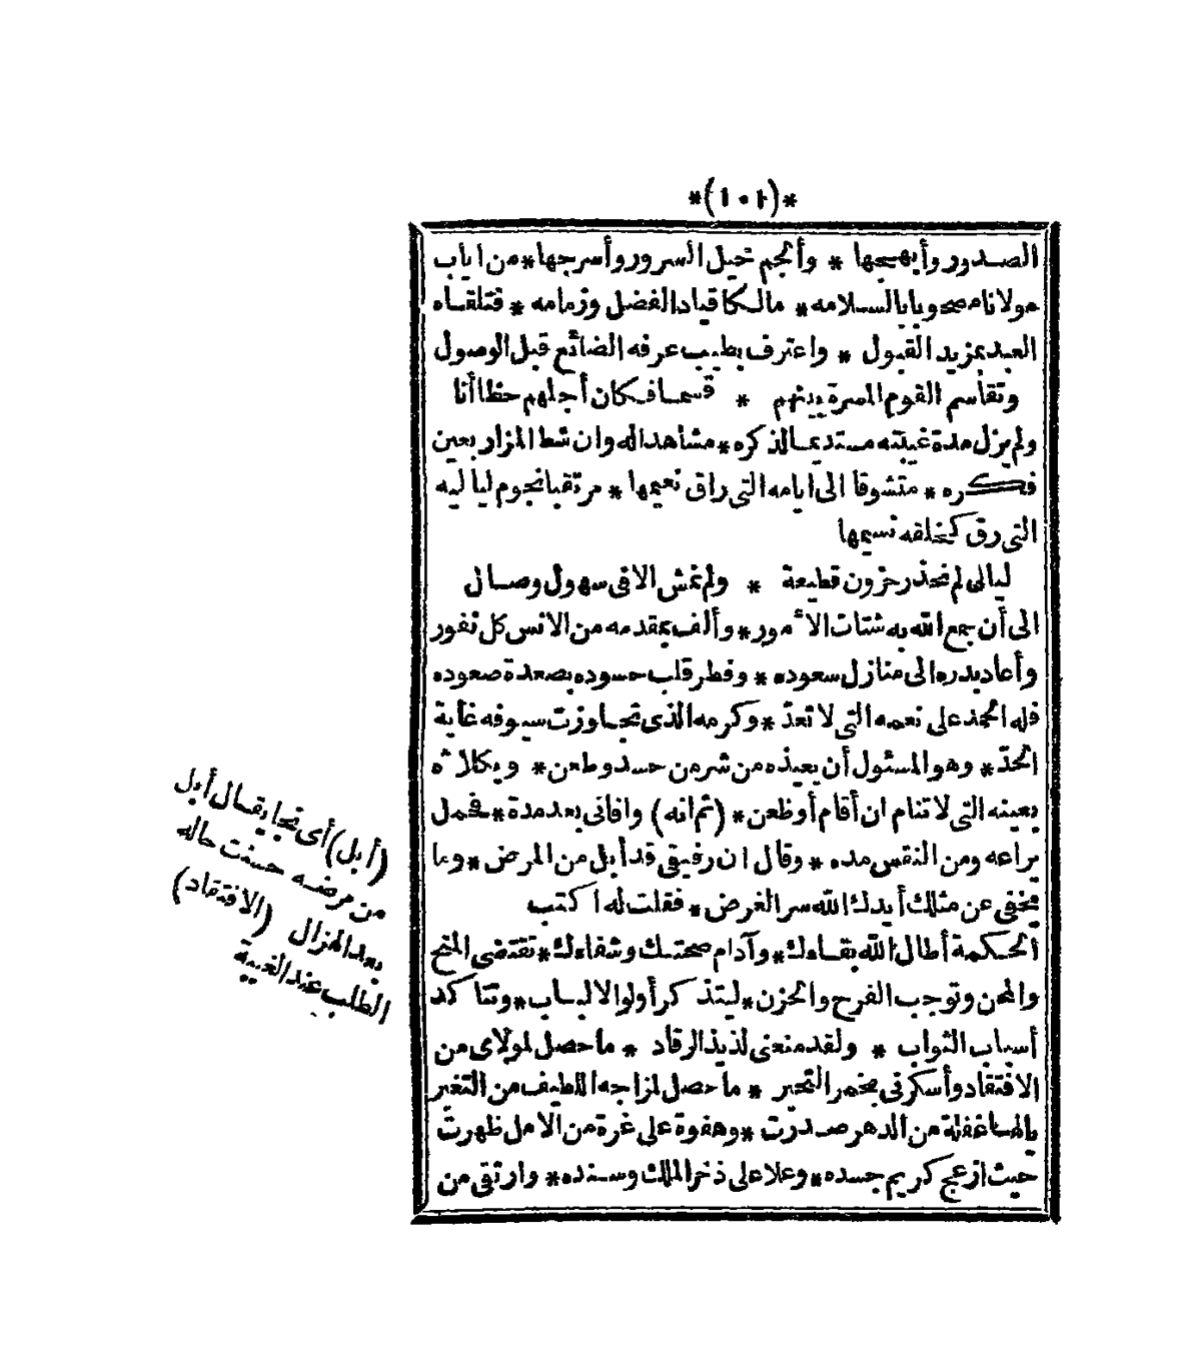 *(١٠٢)*
الصدور وأبهجها * وألجم خيل السرور وأسرجها * من اياب
مولانا مصحوبا بالسلامه * مالكا قياد الفضل وزمامه * فتلقاه
العبد بمزيد القبول * واعترف بطيب عرفه الضائع قبل الوصول
وتقاسم القوم المسرة بينهم * قسما فكان أجلهم حظا أنا
ولم يزل مدة غيبته مستديما لذكره * مشاهدا له وان شط المزار بعين
فكره * متشوقا الى ايامه التى راق نعيمها * مرتقبا نجوم لياليه
التى رق كخلقه نسيمها
ليالى لم نحذر حزون قطيعة * ولم نمش الا فى سهول وصال
الى أن جمع الله به شتات الأمور * وألف بمقدمه من الانس كل نفور
وأعاد بدره الى منازل سعوده * وفطر قلب حسوده بصعدة صعوده
فله الحمد على نعمه التى لا تعدّ * وكرمه الذى تجاوزت سيوفه غاية
الحدّ * وهو المسئول أن يعيذه من شر من حسد وطعن * ويكلأه
بعينه التى لا تنام ان أقام أو ظعن * (ثم انه) وافانى بعد مدة * فحمل
يراعه ومن النقس مده * وقال ان رفيقى قد أبل من المرض * وما
يخفى عن مثلك أيدك الله سر الغرض * فقلت له اكتب
الحكمة أطال الله بقاءك * وآدام صحتك وشفاءك * تقتضى المنح
والمحن وتوجب الفرح والحزن * ليتذكر أولو الالباب * وتتاكد
أسباب الثواب * ولقد منعنى لذيذ الرقاد * ما حصل لمولاى من
الافتقاد وأسكرنى بخمر التحير * ما حصل لمزاجه اللطيف من التغير
يالها غفلة من الدهر صدرت * وهفوة على غرة من الامل ظهرت
حيث ازعج كريم جسده * وعلا على ذخر الملك وسنده * وارتقى من
(أبل) أى نجا يقال أبل
من مرضه حسنت حاله
بعد الهزال (الافتقاد)
الطلب عند الغيبة